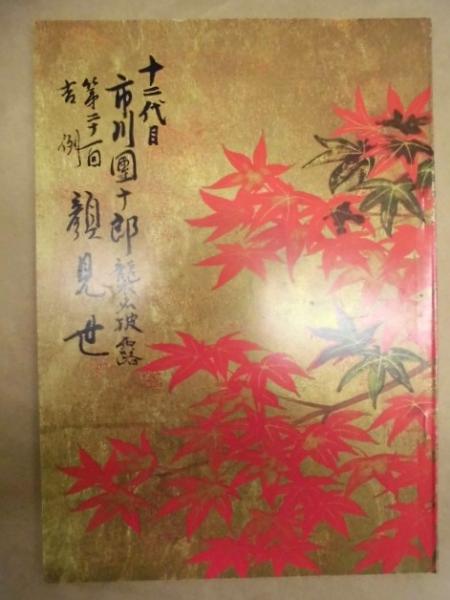 十二代目
市川團十郎襲名披露
第二十一回
吉例
顔見世